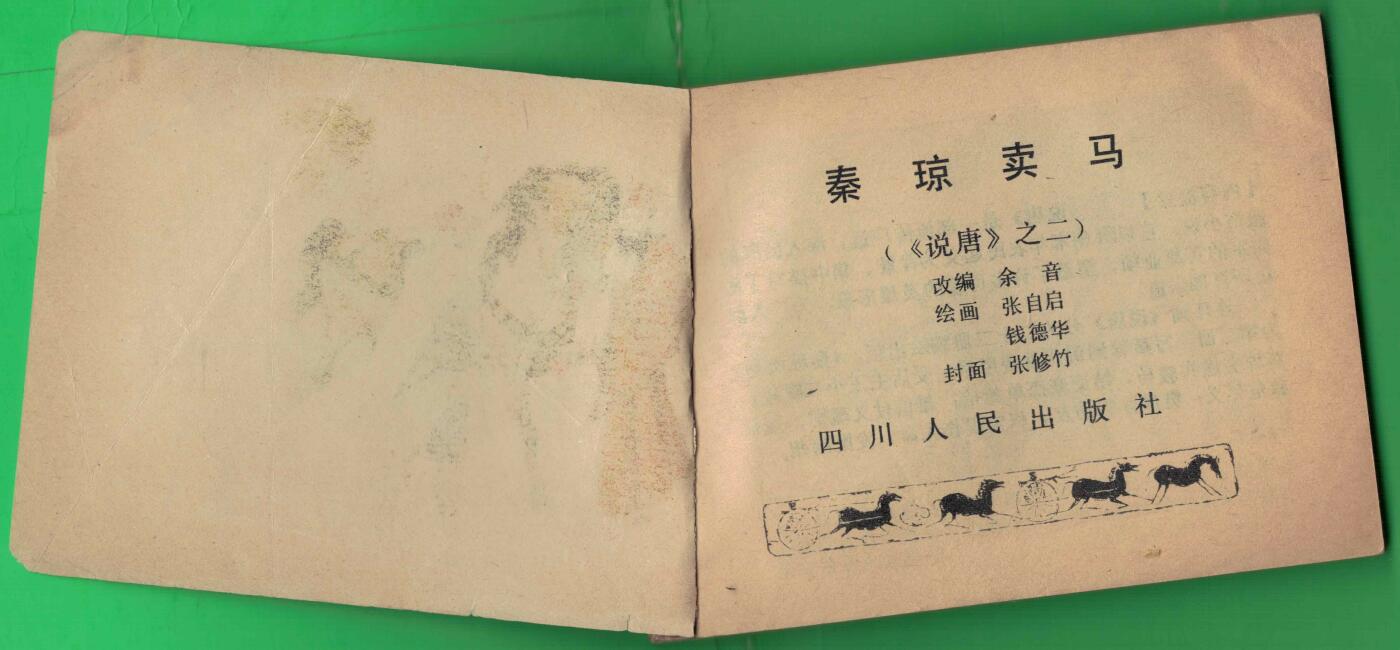 秦琼卖马
（《说唐》之二）
改编 余音
绘画 张自启
钱德华
封面 张修竹
四川人民出版社